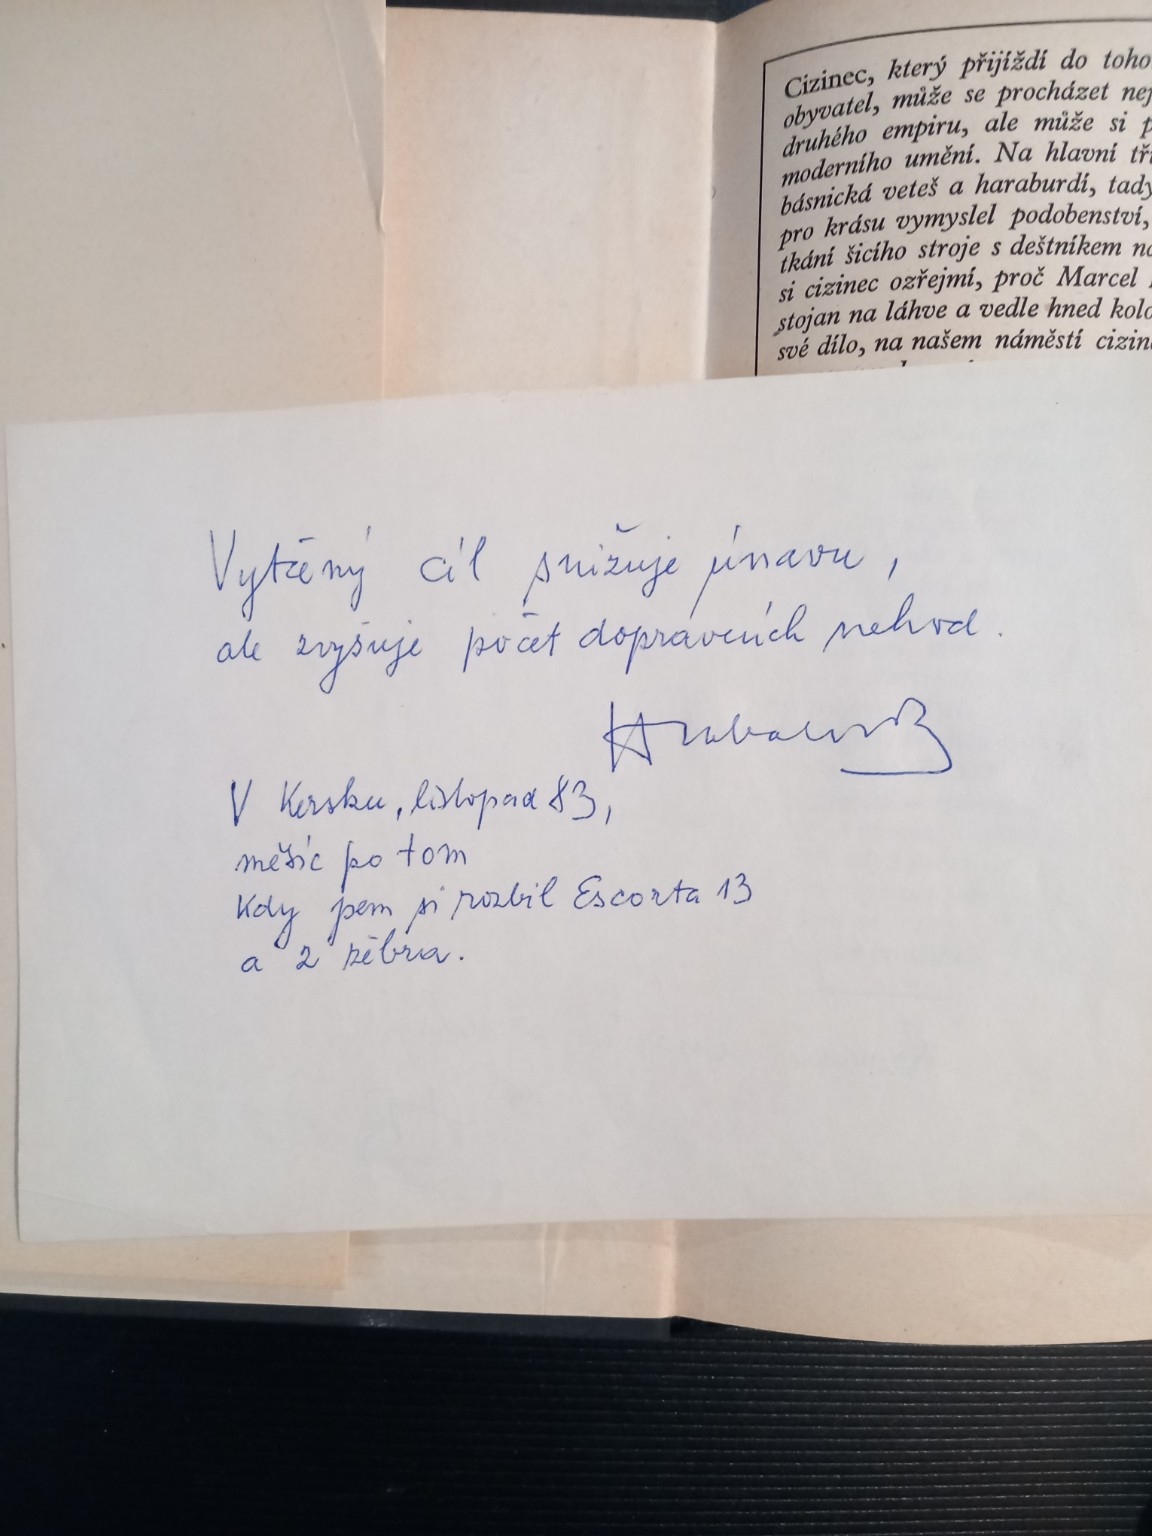 Cizinec, který přijíždí do toho
obyvatel, může se procházet nej
druhého empiru, ale může si p
moderního umění. Na hlavní tří
básnická veteš a haraburdí, tady
pro krásu vymyslel podobenství,
tkání šicího stroje s deštníkem na
si cizinec ozřejmí, proč Marcel
stojan na láhve a vedle hned kolo
své dílo, na našem náměstí cizin
Vytčený cíl snižuje únavu,
ale zvyšuje počet dopravních nehod.
Hrabal B
V Kersku, listopad 83,
měsíc po tom
kdy jsem si rozbil Escorta 13
a 2 žebra.